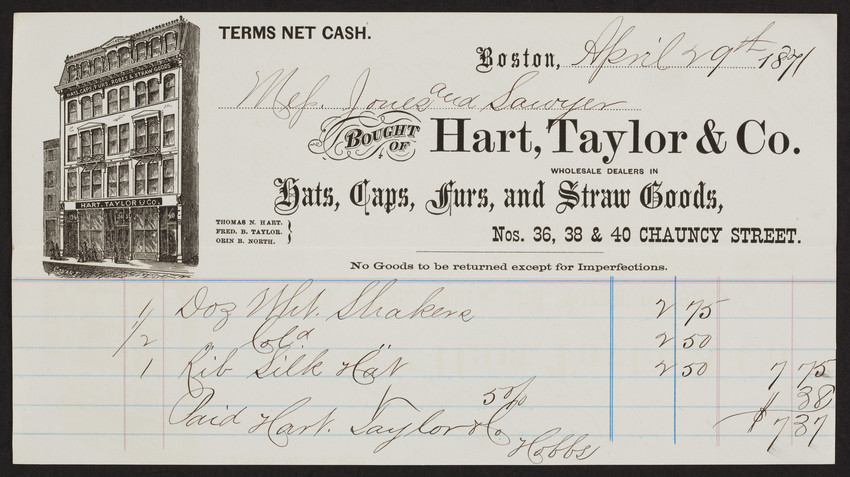 TERMS NET CASH.
Boston, April 29th 1871
Mess. Jones and Sawyer
BOUGHT OF Hart, Taylor & Co.
WHOLESALE DEALERS IN
Hats, Caps, Furs, and Straw Goods,
THOMAS N. HART.
FRED. B. TAYLOR.
ORIN B. NORTH.
Nos. 36, 38 & 40 CHAUNCY STREET.
No Goods to be returned except for Imperfections.
HATS, CAPS, FURS, ROBES & STRAW GOODS
HART, TAYLOR & CO.
1/ Doz Wht. Shakers 2 75
1/2 " Cold " 2 50
1 Rib Silk Hat 2 50 7 75
5 o/o 38
Paid Hart. Taylor & Co. $ 7 37
Hobbs